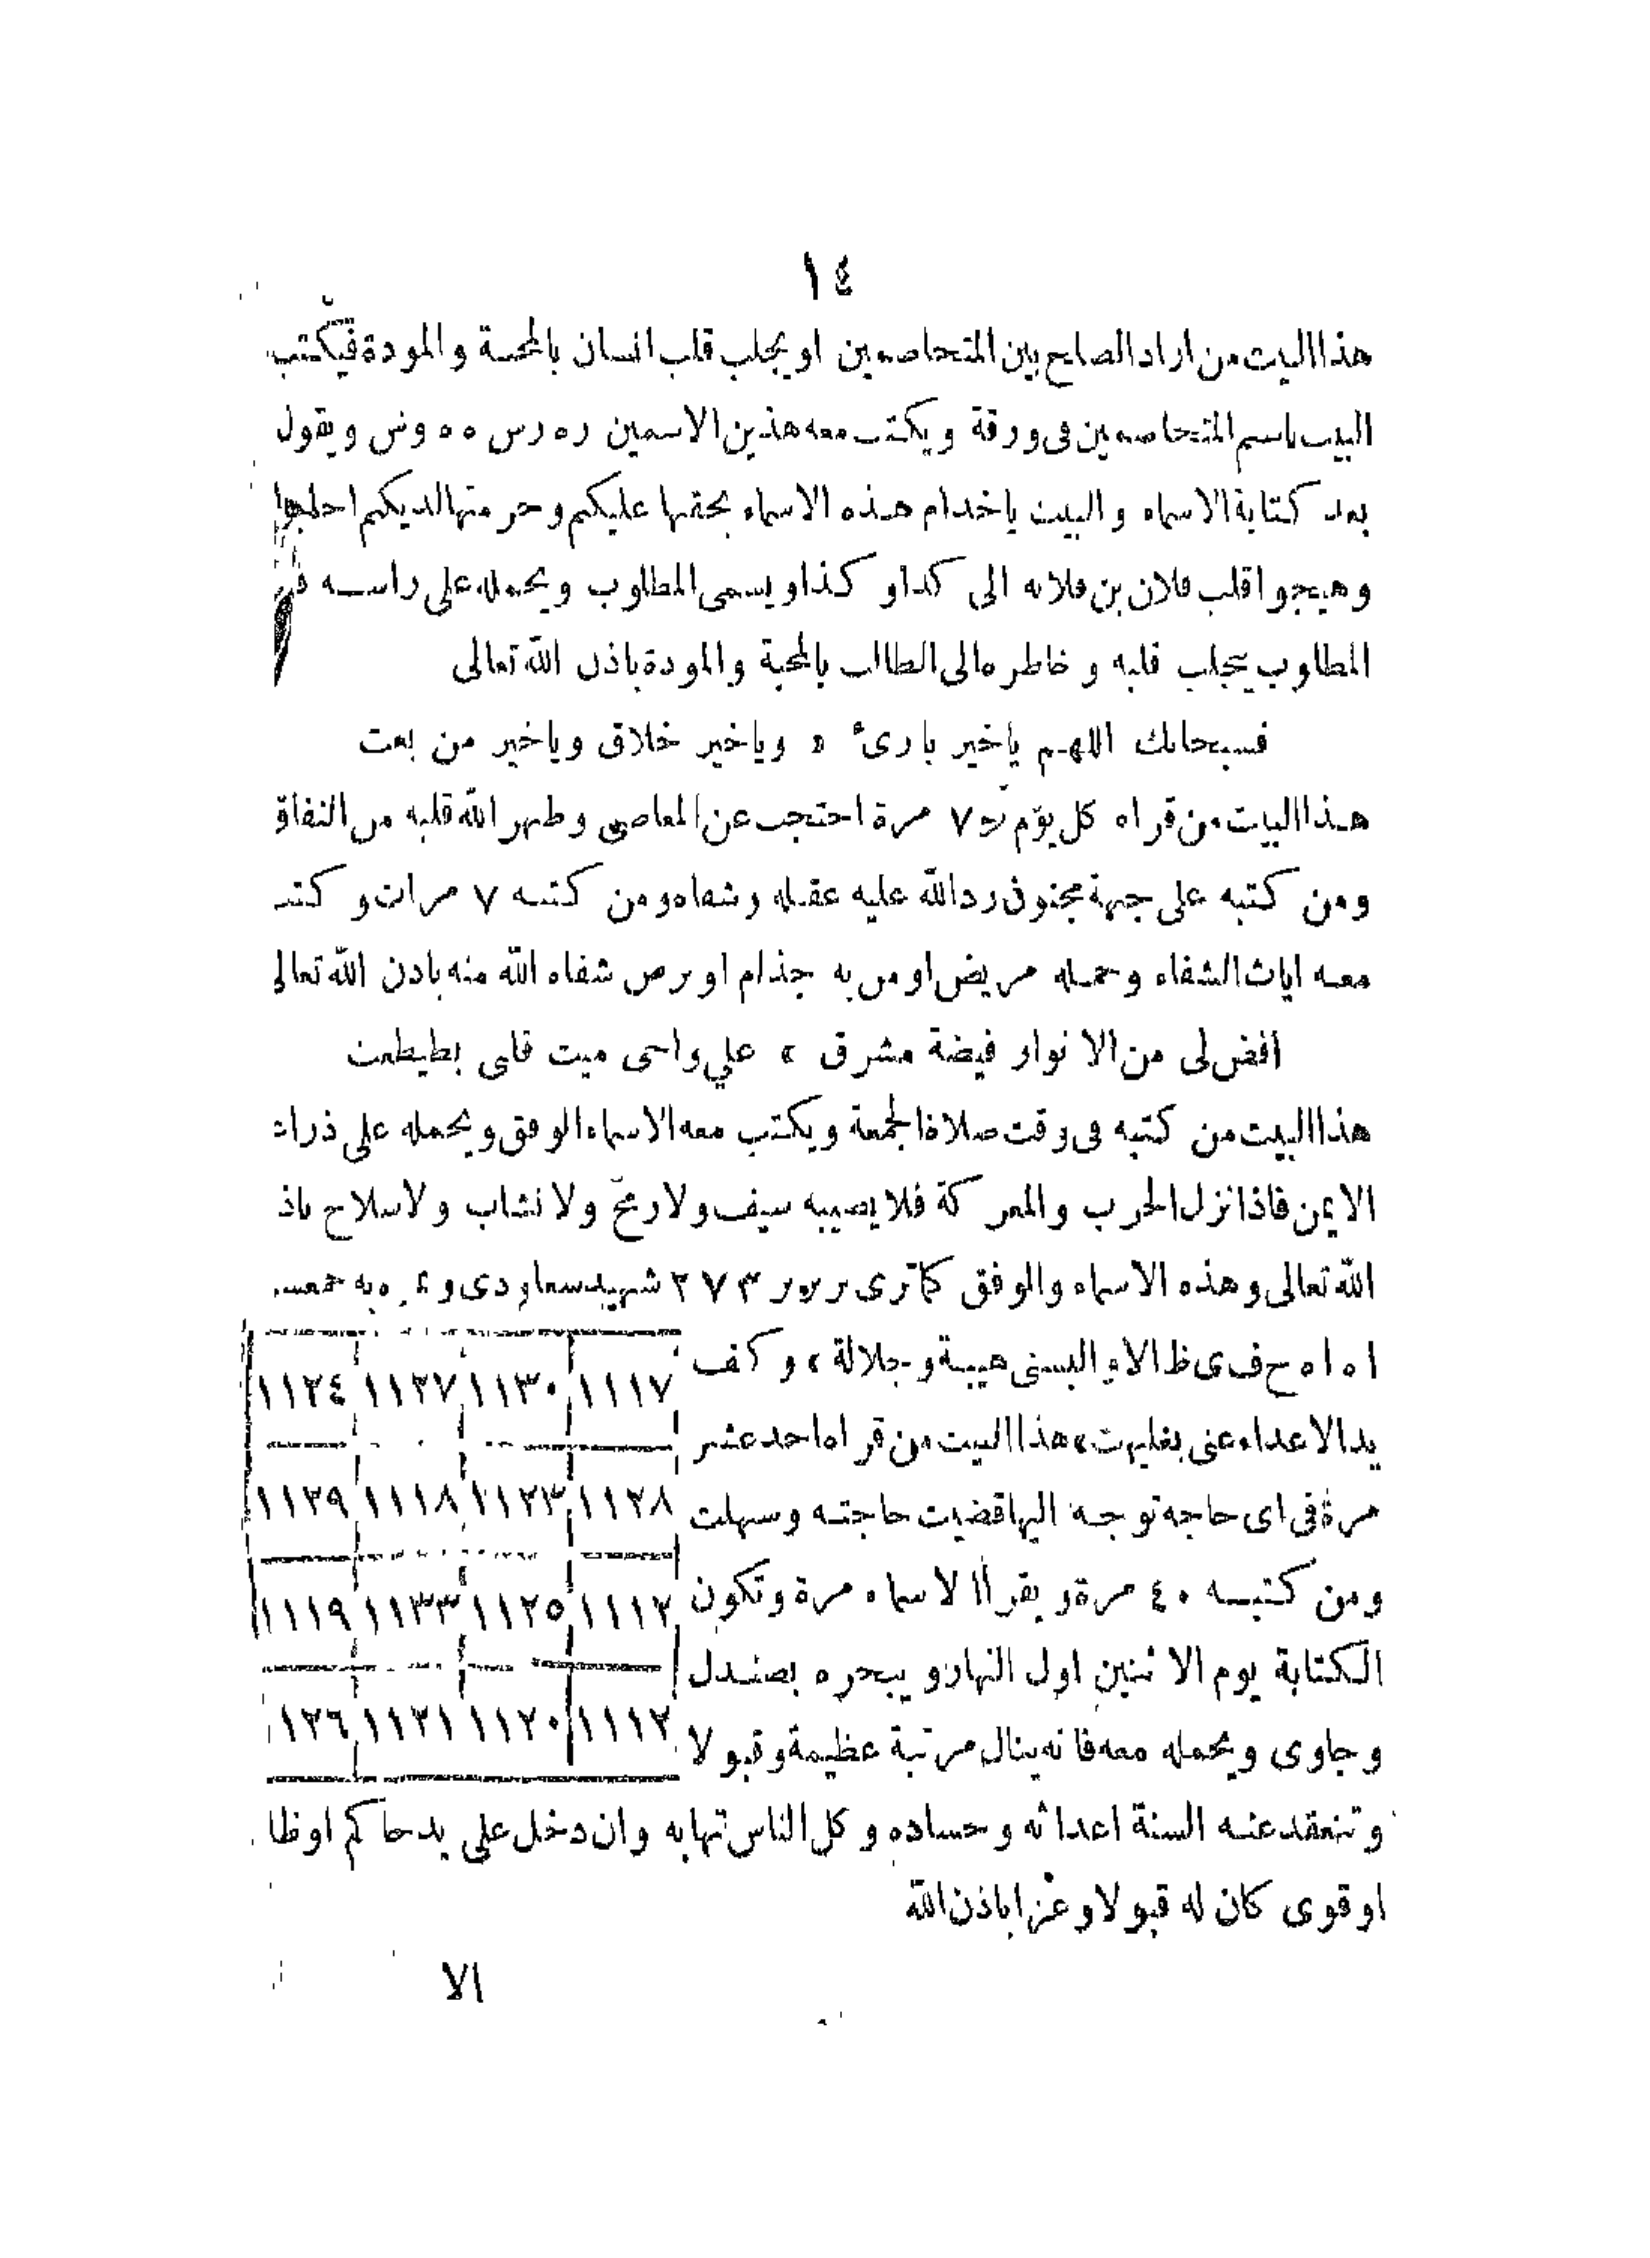 ١٤
هذا البيت من اراد الصلح بين المتخاصمين او يجلب قلب انسان بالمحبة والمودة فيكتب
البيت باسم المتخاصمين فى ورقة ويكتب معه هذين الاسمين ره رس ٥ ٥ وش ويقول
بعد كتابة الاسماء والبيت ياخدام هذه الاسماء بحقها عليكم وحرمتها لديكم اجلبوا
وهيجوا قلب فلان بن فلانه الى كذا و كذا ويسمى المطلوب ويحمله على راسه
المطلوب يجلب قلبه و خاطره الى الطالب بالمحبة والمودة باذن الله تعالى
فسبحانك اللهم ياخير بارئ * وياخير خلاق وياخير من بعت
هذا البيت من قراه كل يوم ٧ مرة احتجب عن المعاصى وطهر الله قلبه من النفاق
ومن كتبه على جبهة مجنون رد الله عليه عقله وشفاه ومن كتبه ٧ مرات وكتب
معه ايات الشفاء وحمله مريض او من به جذام او برص شفاه الله منه باذن الله تعالى
أفض لى من الانوار فيضة مشرق * علي واحى ميت قلبى بطيطغت
هذا البيت من كتبه فى وقت صلاة الجمعة ويكتب معه الاسماء الوفق ويحمله على ذراعه
الايمن فاذا نزل الحرب والمعركة فلا يصيبه سيف ولا رمح ولا نشاب ولا سلاح باذن
الله تعالى وهذه الاسماء والوفق كما ترى ٢٧٣ شهيد
ا ه ا ه ح ف ى ظ الا والبسنى هيبة وجلالة * وكف
يد الاعداء عنى بغلمهت * هذا البيت من قراه احد عشر
مرة فى اى حاجه توجه اليها قضيت حاجته وسهلت
ومن كتبه ٤٠ مرة ويقرأ الاسماء مرة وتكون
الكتابة يوم الاثنين اول النهار ويبخره بصندل
وجاوى ويحمله معه فانه ينال مرتبة عظيمة وقبولا
١١١٧ ١١٣٠ ١١٢٧ ١١٢٤
١١٢٨ ١١٢٣ ١١١٨ ١١٢٩
١١١٢ ١١٢٥ ١١٣٣ ١١١٩
١١١٢ ١١٢٠ ١١٢١ ١٢٦
وتنعقد عنه السنة اعدائه وحساده وكل الناس تهابه وان دخل على يد حاكم او ظا
او قوى كان له قبولا وعزا باذن الله
الا